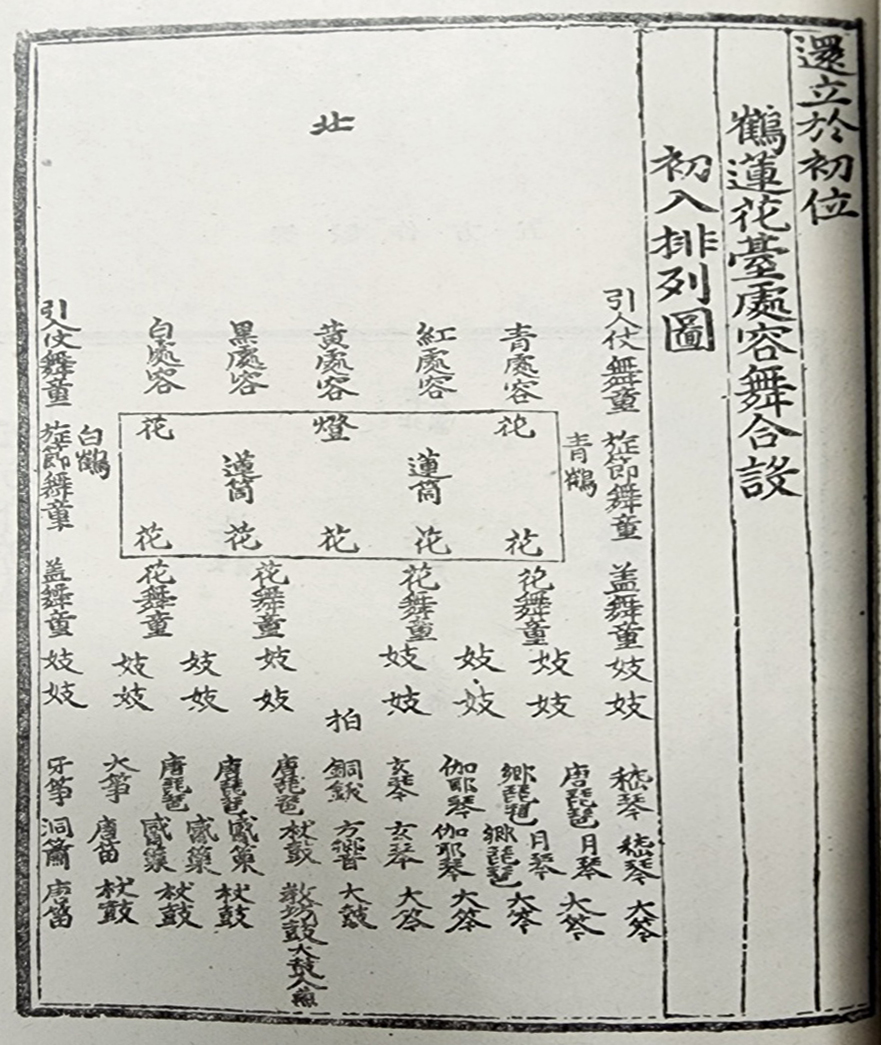 還立於初位
鶴蓮花臺處容舞合設
初入排列圖
北
引人仗舞童 青處容 紅處容 黃處容 黑處容 白處容 引人仗舞童
旌節舞童 青鶴 花 燈 花 白鶴 旌節舞童
蓮筒 蓮筒
花 花 花 花 花
盖舞童 花舞童 花舞童 花舞童 花舞童 盖舞童
妓 妓 妓 妓 妓 妓 妓 妓
妓 妓 妓 妓 妓 妓 妓 妓
拍
嵇琴 唐琵琶 鄕琵琶 伽耶琴 玄琴 銅鈸 唐琵琶 唐琵琶 唐琵琶 大箏 牙箏
嵇琴 月琴 月琴 鄕琵琶 伽耶琴 玄琴 方響 杖鼓 觱篥 觱篥 觱篥 唐笛 洞簫
大笒 大笒 大笒 大笒 大笒 大鼓 敎坊鼓大鼓人兼 杖鼓 杖鼓 杖鼓 唐笛